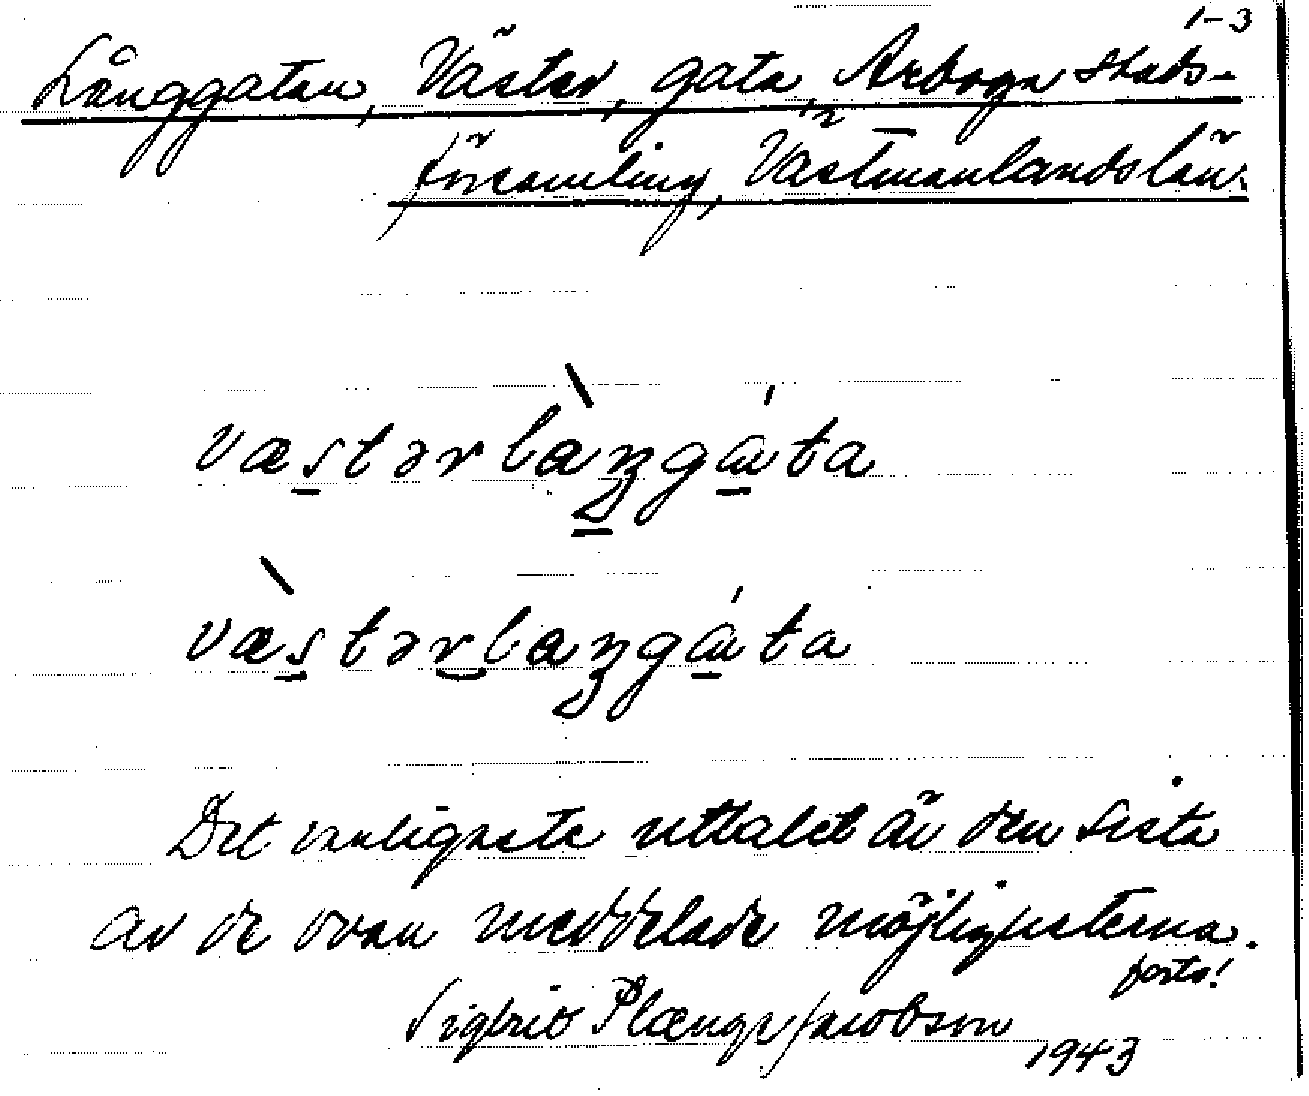 1-3
Långgatan, Väster, gata, i Arboga stads-
församling, Västmanlands län.
væstərlàŋgáta
væ̀stərlaŋgáta
Det vanligaste uttalet är den sista
av de ovan meddelade möjligheterna.
forts!
Sigfrid Plænge Jacobson
1943